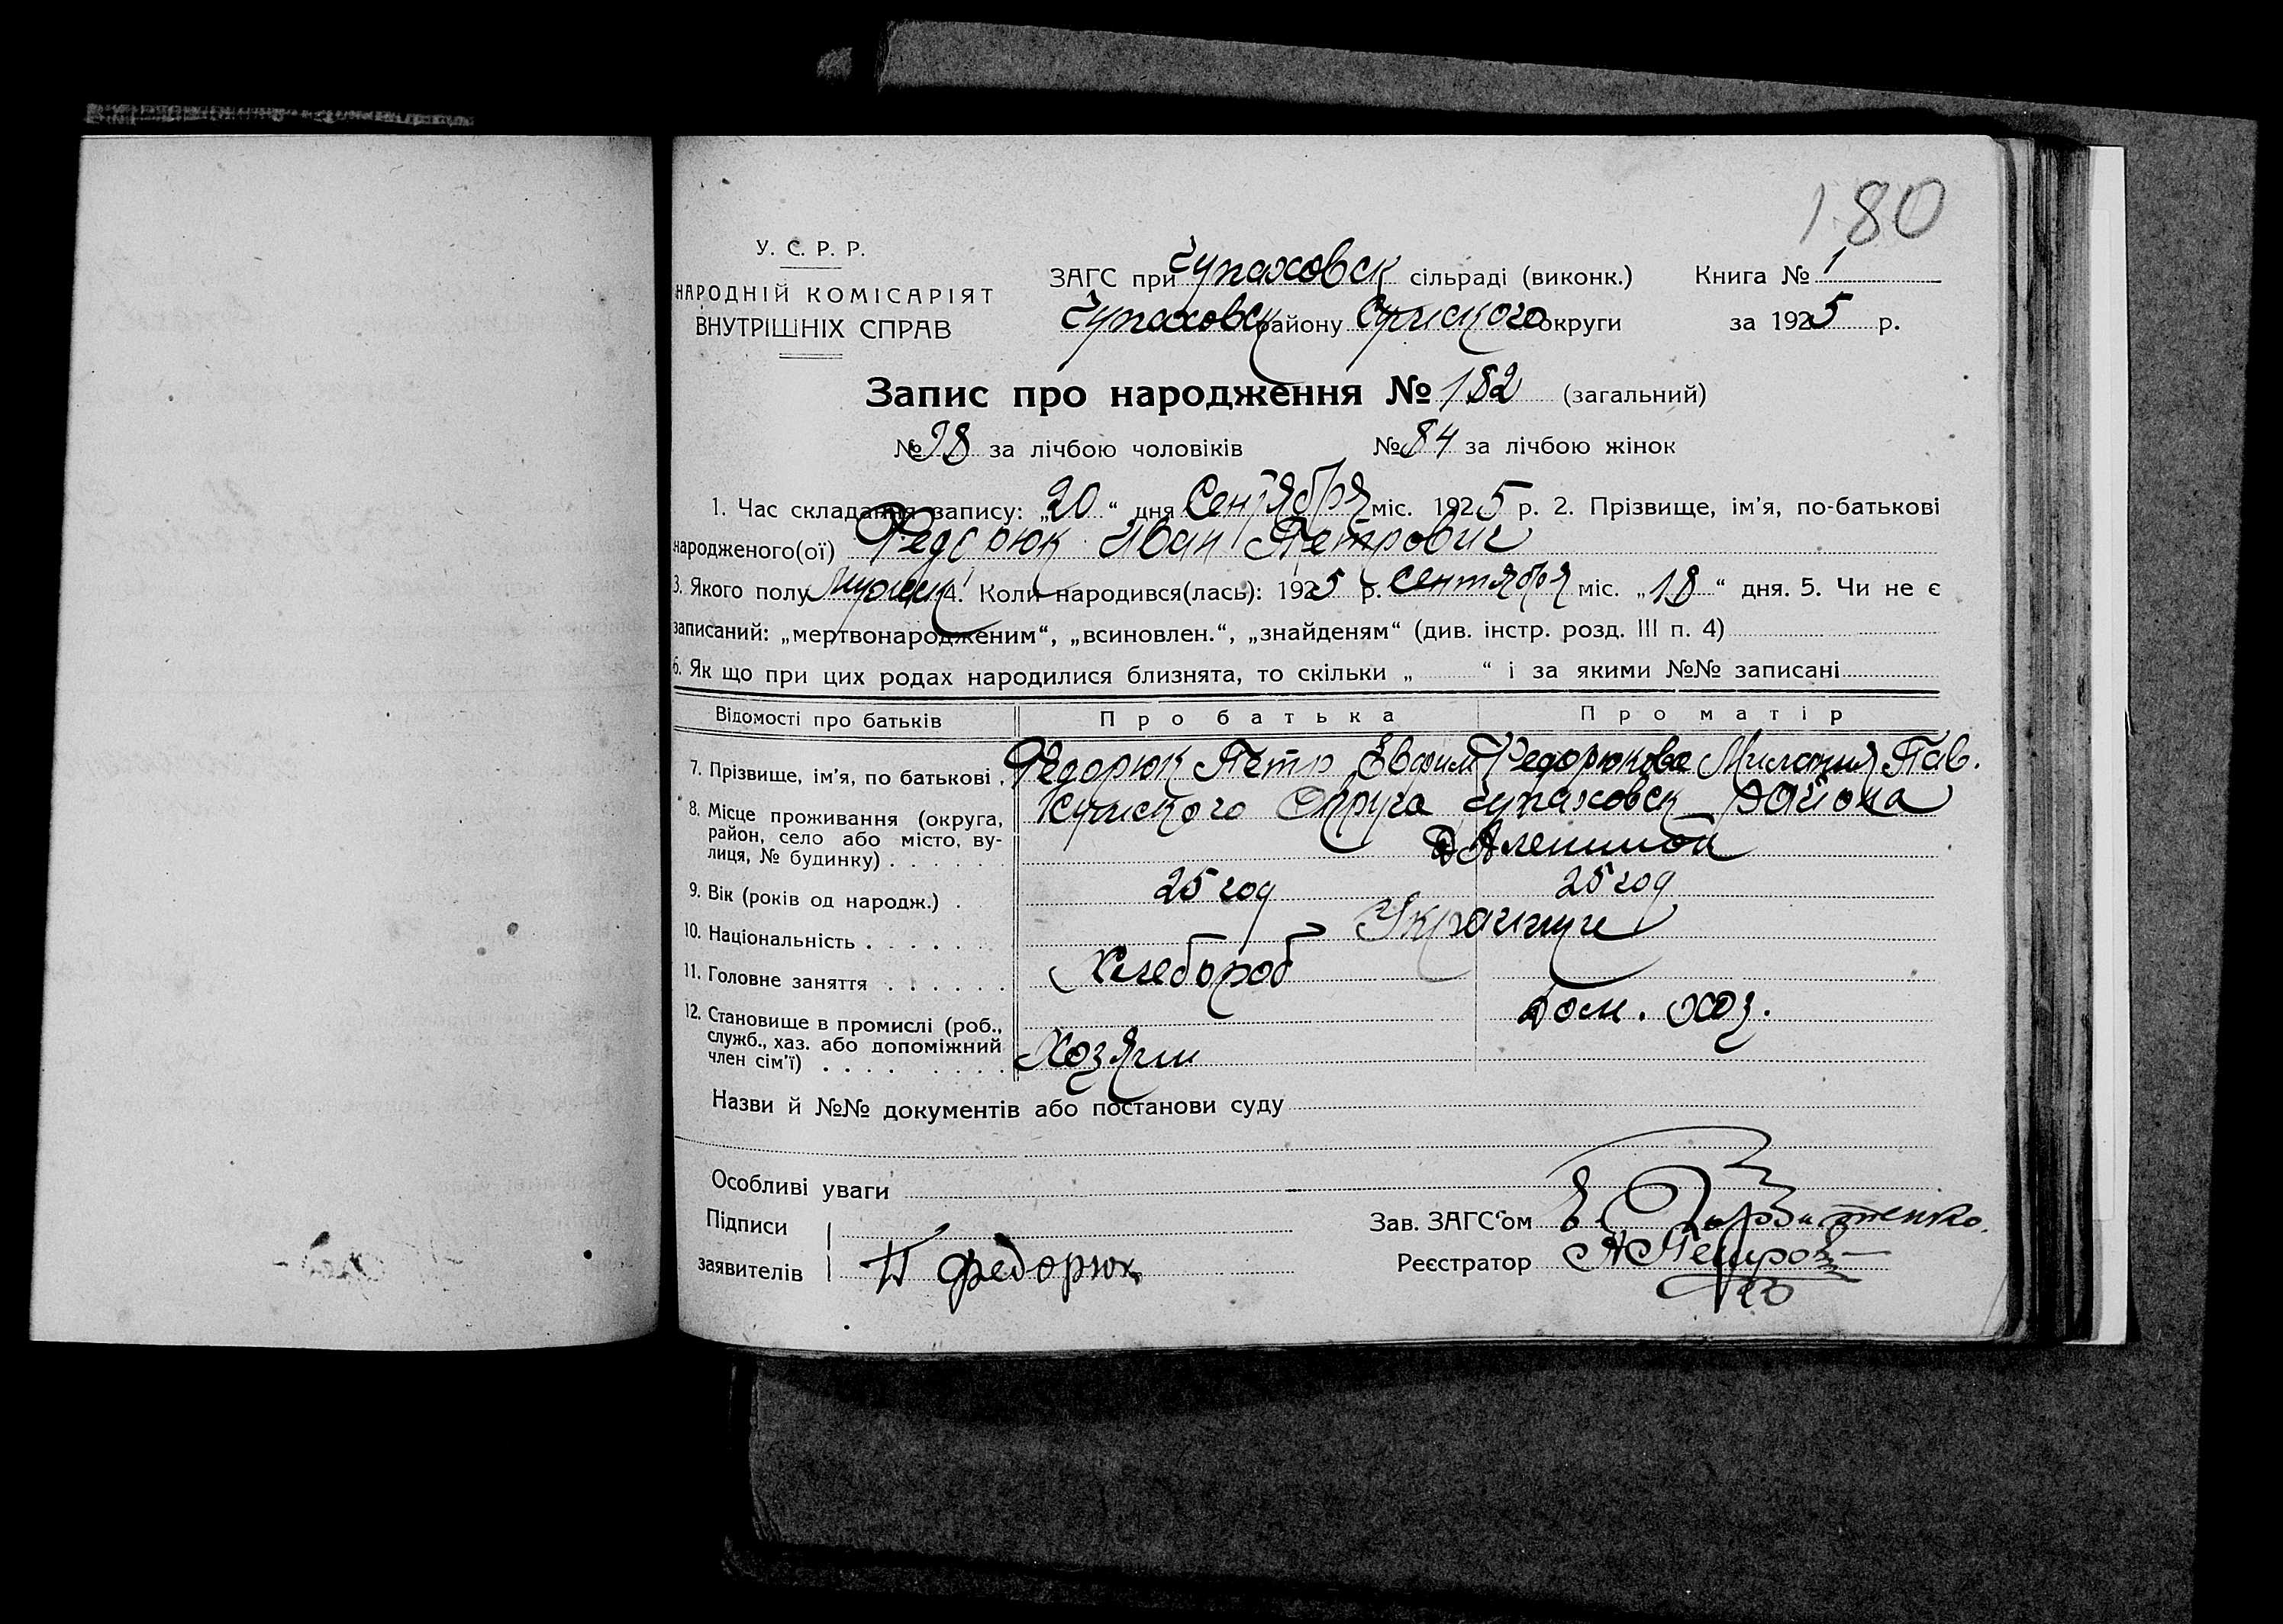 180
У. С. Р. Р.
НАРОДНІЙ КОМІСАРІЯТ
ВНУТРІШНІХ СПРАВ
ЗАГС при Чупаховск сільраді (виконк.)
Чупаховск району Сумского округи
Книга № 1
за 1925 р.
Запис про народження № 182 (загальний)
№ 98 за лічбою чоловіків № 84 за лічбою жінок
1. Час складання запису: „20“ дня Сентября міс. 1925 р. 2. Прізвище, ім’я, по-батькові
народженого(ої) Федорюк Иван Петрович
3. Якого полу Мужск 4. Коли народився(лась): 1925 р. сентября міс. „18“ дня. 5. Чи не є
записаний: „мертвонародженим“, „всиновлен.“, „знайденям“ (див. інстр. розд. III п. 4)
6. Як що при цих родах народилися близнята, то скільки „ “ і за якими №№ записані
Відомості про батьків Про батька Про матір
7. Прізвище, ім’я, по батькові . Федорюк Петр Евфим Федорюкова Милания Пав.
8. Місце проживання (округа, Сумского Округа Чупаховск Района
район, село або місто, ву-
лиця, № будинку) . . . .
9. Вік (років од народж.) . 25 год 25 год
10. Національність . . . . . . Украинцы
11. Головне заняття . . . . . . Хлебороб
Дом. хоз.
12. Становище в промислі (роб.,
служб., хаз. або допоміжний
член сім’ї) . . . . . . . . Хозяин
Назви й №№ документів або постанови суду
Особливі уваги
Підписи
заявителів П Федорюк
Зав. ЗАГС’ом
Реєстратор